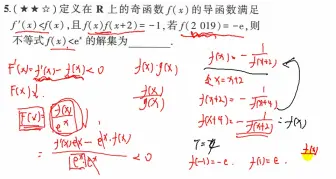 5.(★★☆)定义在 R 上的奇函数 f(x) 的导函数满足
f′(x)<f(x),且 f(x)f(x+2)=-1,若 f(2 019)=-e,则
不等式 f(x)<eˣ 的解集为________.
F′(x)=f′(x)-f(x)<0
F(x)↓.
f(x)·g(x)
f(x)/g(x)
F(x)= f(x)/eˣ
= (f′(x)eˣ-eˣ·f(x))/(eˣ·eˣ) <0
f(x)=-1/f(x+2)
x=x+2
f(x+2)=-1/f(x+4)
f(x+4)=-1/f(x+2)=f(x)
f(-1)=-e. f(1)=e.
f(x)